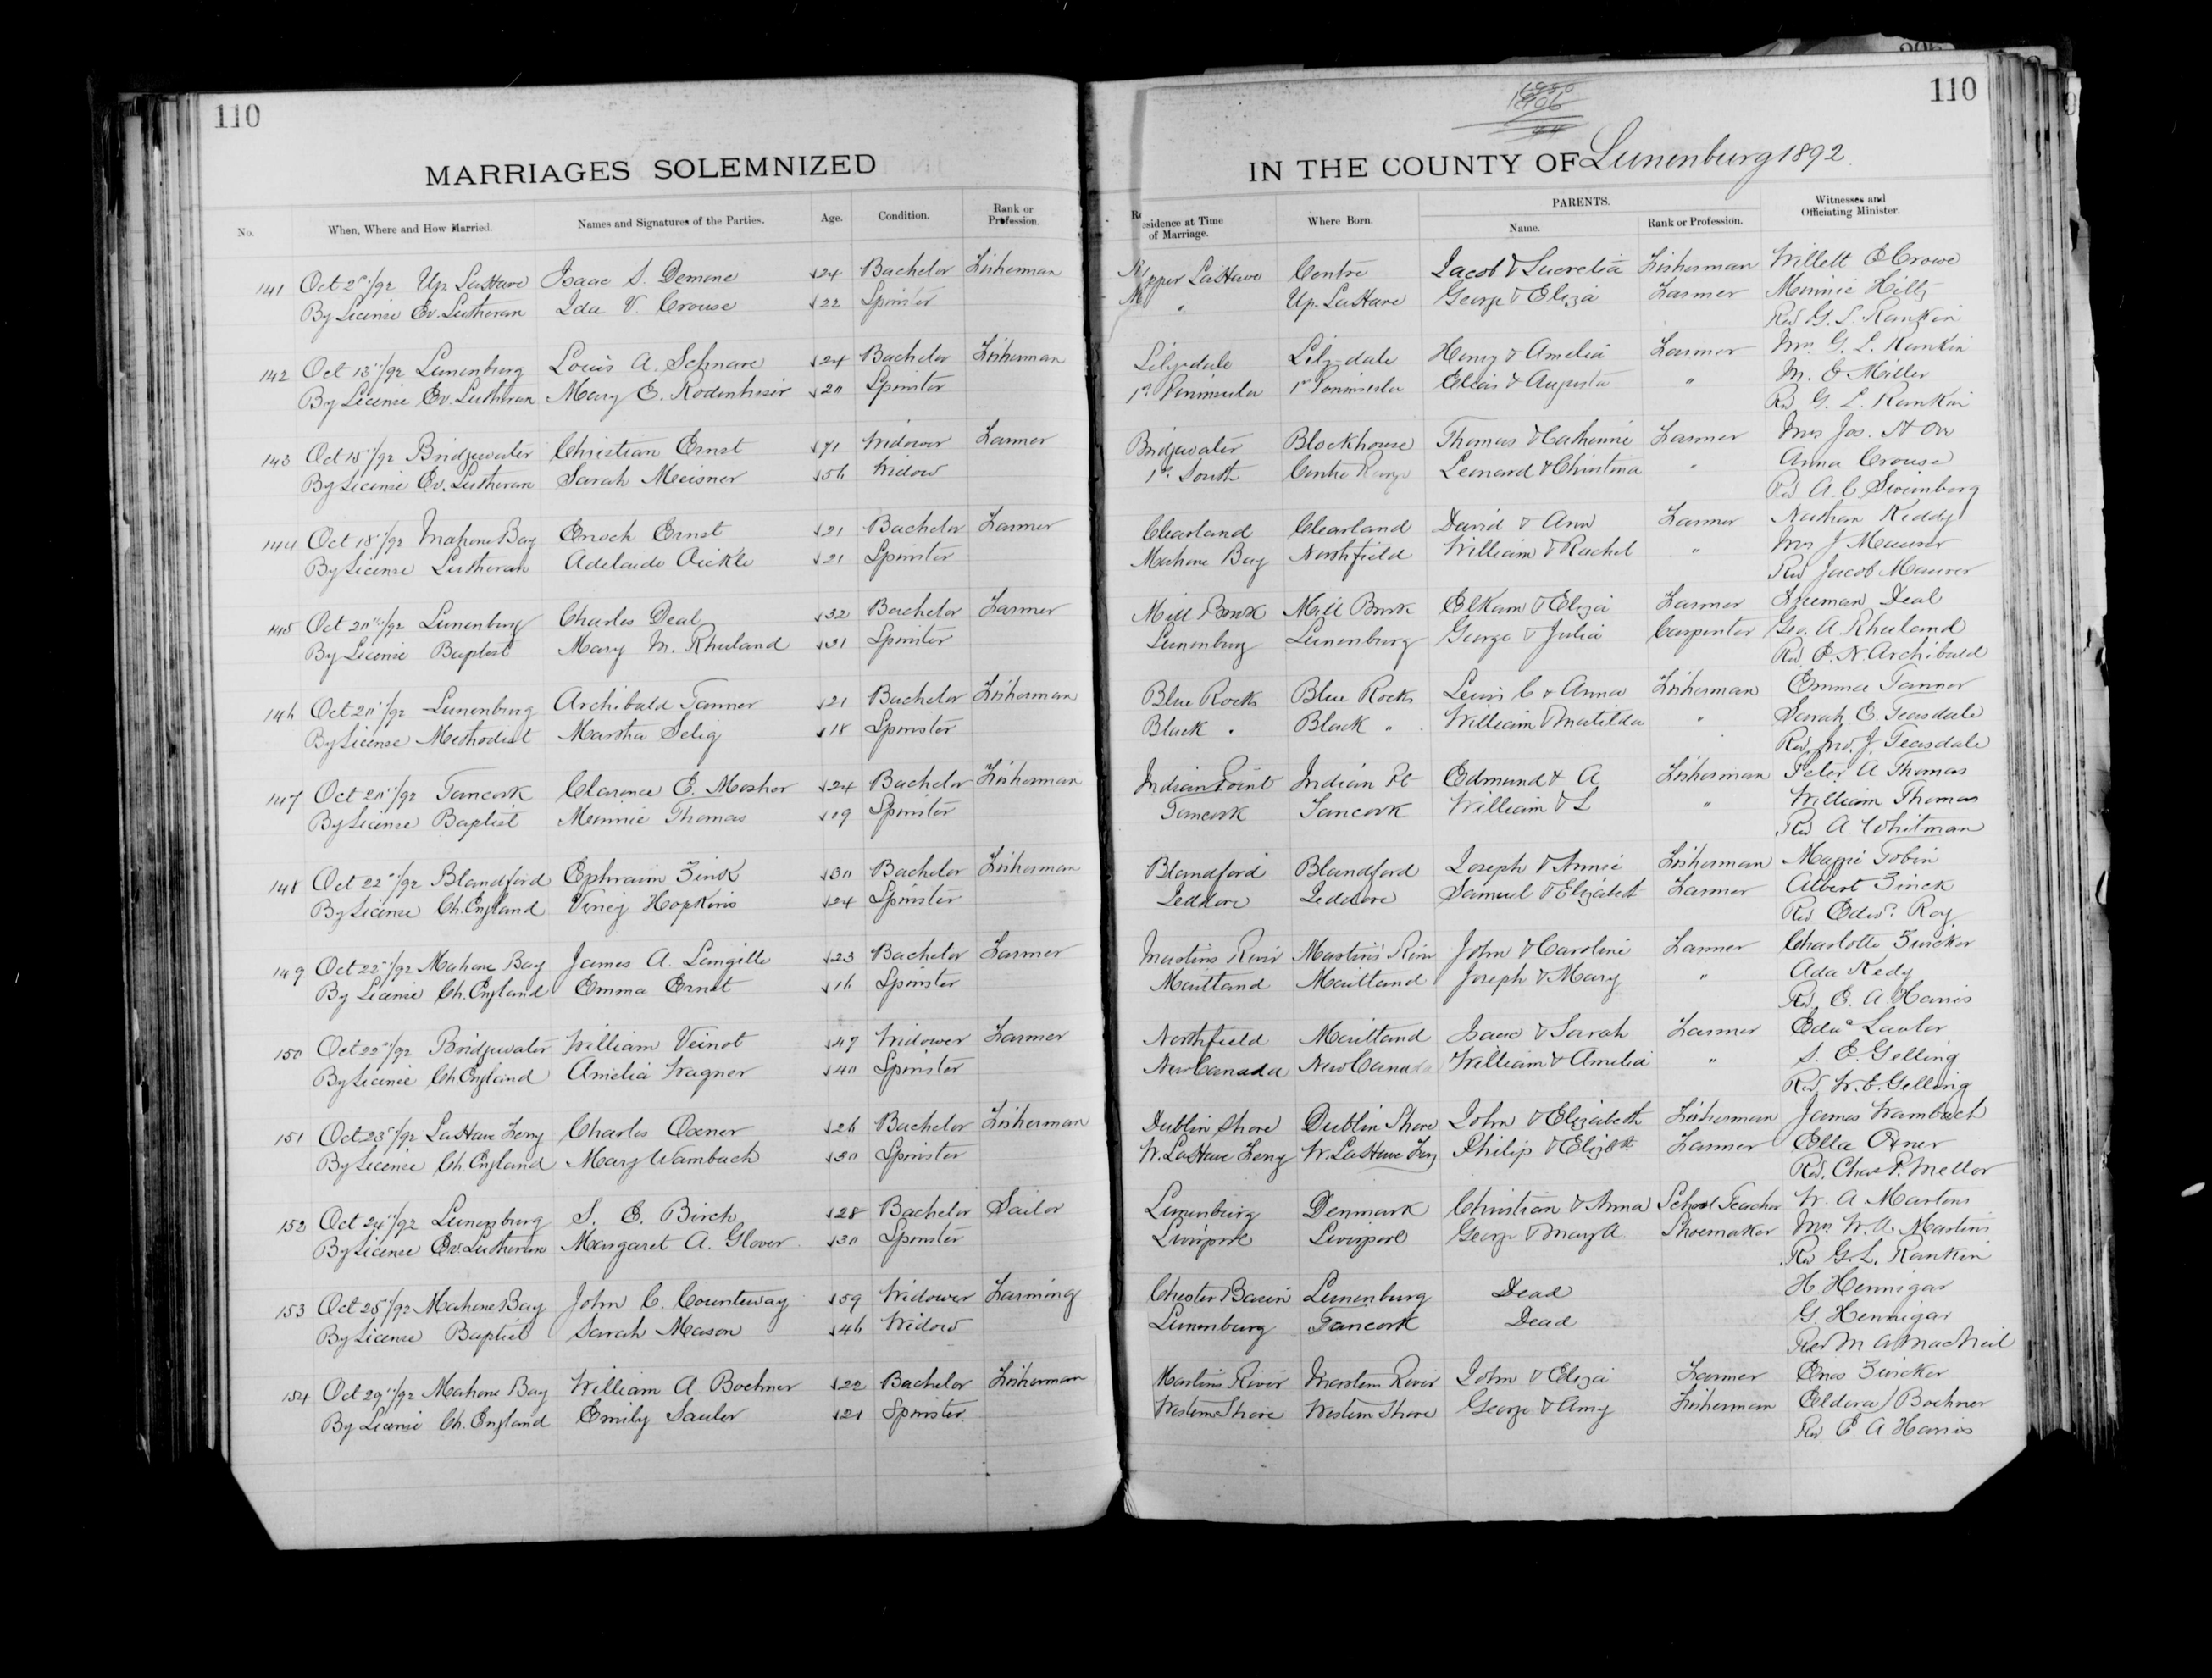 110
110
MARRIAGES SOLEMNIZED
IN THE COUNTY OF Lunenburg 1892.
No. When, Where and How Married. Names and Signatures of the Parties. Age. Condition. Rank or Profession. Residence at Time of Marriage. Where Born. PARENTS. Name. Rank or Profession. Witnesses and Officiating Minister.
141 Oct /92 Up. LaHave Isaac S. Demone 24 Bachelor Fisherman Upper LaHave Centre Jacob & Lucretia Fisherman Willett E Crouse
By License Ev. Lutheran Ida V. Crouse 22 Spinster " Up. LaHave George & Eliza Farmer Minnie Hiltz
Rev G. L. Rankin
142 Oct 13"/92 Lunenburg Louis A. Schnare 24 Bachelor Fisherman Lilydale Lilydale Henry & Amelia Farmer Mrs. G. L. Rankin
By License Ev. Lutheran Mary E. Rodenhiser 20 Spinster 1st Peninsula 1st Peninsula Elias & Augusta " M. E Miller
Rev G. L. Rankin
143 Oct 15"/92 Bridgewater Christian Ernst 71 Widower Farmer Bridgewater Blockhouse Thomas & Catherine Farmer Mrs Jos. H Orr
By License Ev. Lutheran Sarah Meisner 56 Widow 1st South Centre Range Leonard & Christina " Anna Crouse
Rev A. C Swinborg
144 Oct 18"/92 Mahone Bay Enoch Ernst 21 Bachelor Farmer Clearland Clearland David & Ann Farmer Nathan Keddy
By License Lutheran Adelaide Aickle 21 Spinster Mahone Bay Northfield William & Rachel " Mrs J Maurer
Rev Jacob Maurer
145 Oct 20"/92 Lunenburg Charles Deal 32 Bachelor Farmer Mill Brook Mill Brook Elkam & Eliza Farmer Freeman Deal
By License Baptist Mary M. Rhuland 31 Spinster Lunenburg Lunenburg George & Julia Carpenter Geo. A. Rhuland
Rev. E. N. Archibald
146 Oct 20"/92 Lunenburg Archibald Tanner 21 Bachelor Fisherman Blue Rocks Blue Rocks Lewis C & Anna Fisherman Emma Tanner
By License Methodist Martha Selig 18 Spinster Black " Black " William & Matilda " Sarah E. Teasdale
Rev. Jno. J. Teasdale
147 Oct 20"/92 Tancook Clarence E. Mosher 24 Bachelor Fisherman Indian Point Indian Pt Edmund & A Fisherman Peter A Thomas
By License Baptist Minnie Thomas 19 Spinster Tancook Tancook William & L " William Thomas
Rev A Whitman
148 Oct 22"/92 Blandford Ephraim Zink 30 Bachelor Fisherman Blandford Blandford Joseph & Annie Fisherman Maggie Tobin
By License Ch. England Viney Hopkins 24 Spinster Jeddore Jeddore Samuel & Elizabeth Farmer Albert Zinck
Rev Edwd. Roy
149 Oct 22"/92 Mahone Bay James A. Langille 23 Bachelor Farmer Martins River Martins River John & Caroline Farmer Charlotte Zwicker
By License Ch. England Emma Ernst 16 Spinster Maitland Maitland Joseph & Mary " Ada Kedy
Rev. E. A. Harris
150 Oct 22"/92 Bridgewater William Veinot 47 Widower Farmer Northfield Maitland Isaac & Sarah Farmer Edwd Lawlor
By License Ch. England Amelia Wagner 40 Spinster New Canada New Canada William & Amelia " S. E. Gelling
Rev. W. E. Gelling
151 Oct 23"/92 LaHave Ferry Charles Oxner 26 Bachelor Fisherman Dublin Shore Dublin Shore John & Elizabeth Fisherman James Wambach
By License Ch. England Mary Wambach 30 Spinster W. LaHave Ferry W. LaHave Ferry Philip & Elizbth Farmer Ella Oxner
Rev. Chas P. Mellor
152 Oct 24"/92 Lunenburg S. E. Birch 28 Bachelor Sailor Lunenburg Denmark Christian & Anna School Teacher W. A Martens
By License Ev. Lutheran Margaret A. Glover 30 Spinster Liverpool Liverpool George & Mary A Shoemaker Mrs. W. A. Martins
Rev G. L. Rankin
153 Oct 25"/92 Mahone Bay John C. Counteway 59 Widower Farming Chester Basin Lunenburg Dead H. Hennigar
By License Baptist Sarah Mason 46 Widow Lunenburg Tancook Dead G. Hennigar
Rev M A MacNeil
154 Oct 29"/92 Mahone Bay William A. Bochner 22 Bachelor Fisherman Martins River Martins River John & Eliza Farmer Enos Zwicker
By License Ch. England Emily Sawler 21 Spinster Western Shore Western Shore George & Amy Fisherman Eldora Bochner
Rev. E A Harris